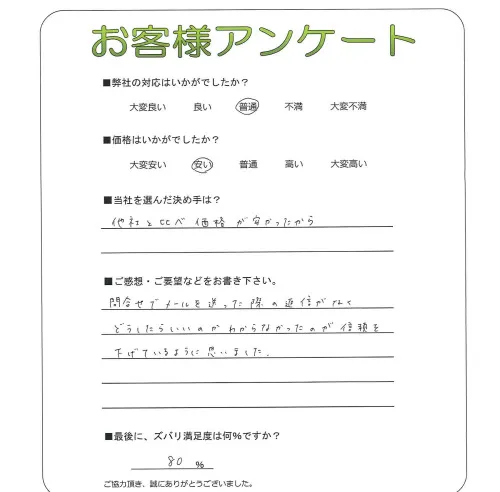 お客様アンケート
■弊社の対応はいかがでしたか？
大変良い 良い 普通 不満 大変不満
■価格はいかがでしたか？
大変安い 安い 普通 高い 大変高い
■当社を選んだ決め手は？
他社と比べ価格が安かったから
■ご感想・ご要望などをお書き下さい。
問合せでメールを送った際の返信がなく
どうしたらいいのかわからなかったのが信頼を
下げているように思いました。
■最後に、ズバリ満足度は何％ですか？
80 %
ご協力頂き、誠にありがとうございました。